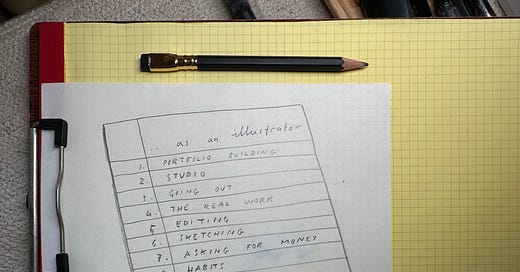 ... as an illustrator
1. PORTFOLIO BUILDING
2. STUDIO
3. GOING OUT
4. THE REAL WORK
5. EDITING
6. SKETCHING
7. ASKING FOR MONEY
HABITS